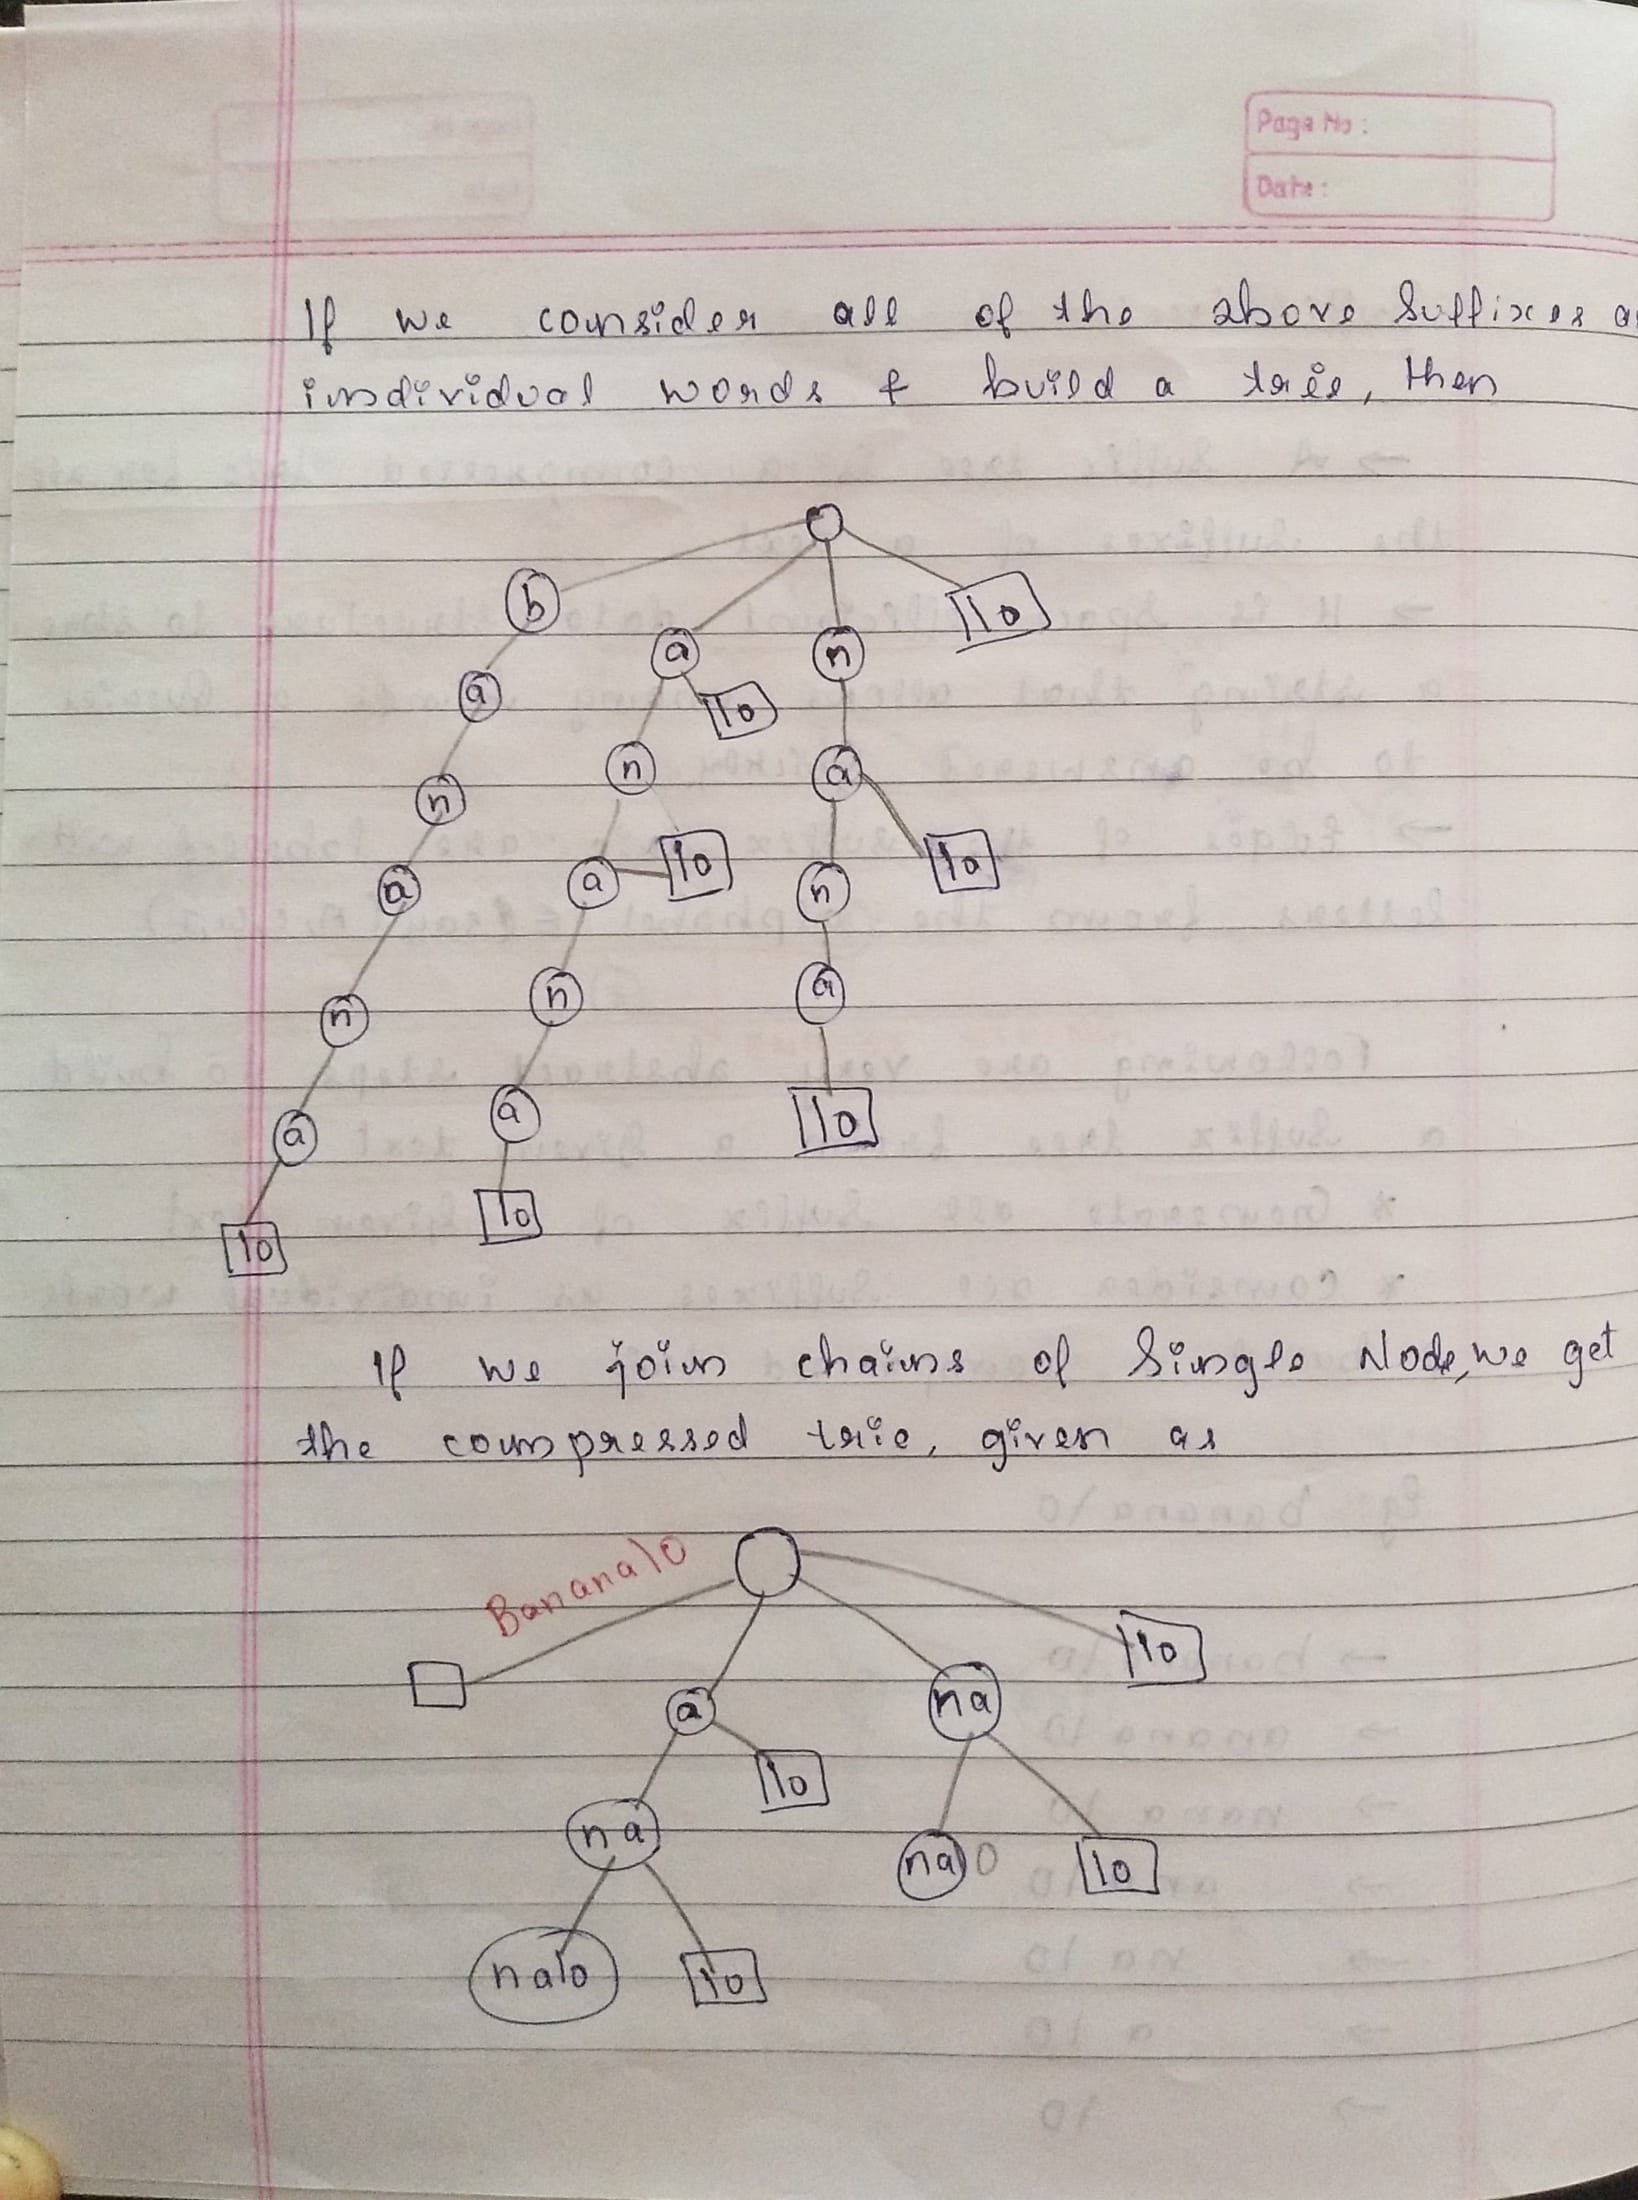 Page No:
Date:
If we consider all of the above Suffixes a
individual words & build a trie, then
b \0
a n
a \0
n n a
a a \0 n \0
n n a
a a \0
\0 \0
If we join chains of Single Node, we get
the compressed trie, given as
Banana\0
\0
a na
\0
na na\0 \0
na\0 \0